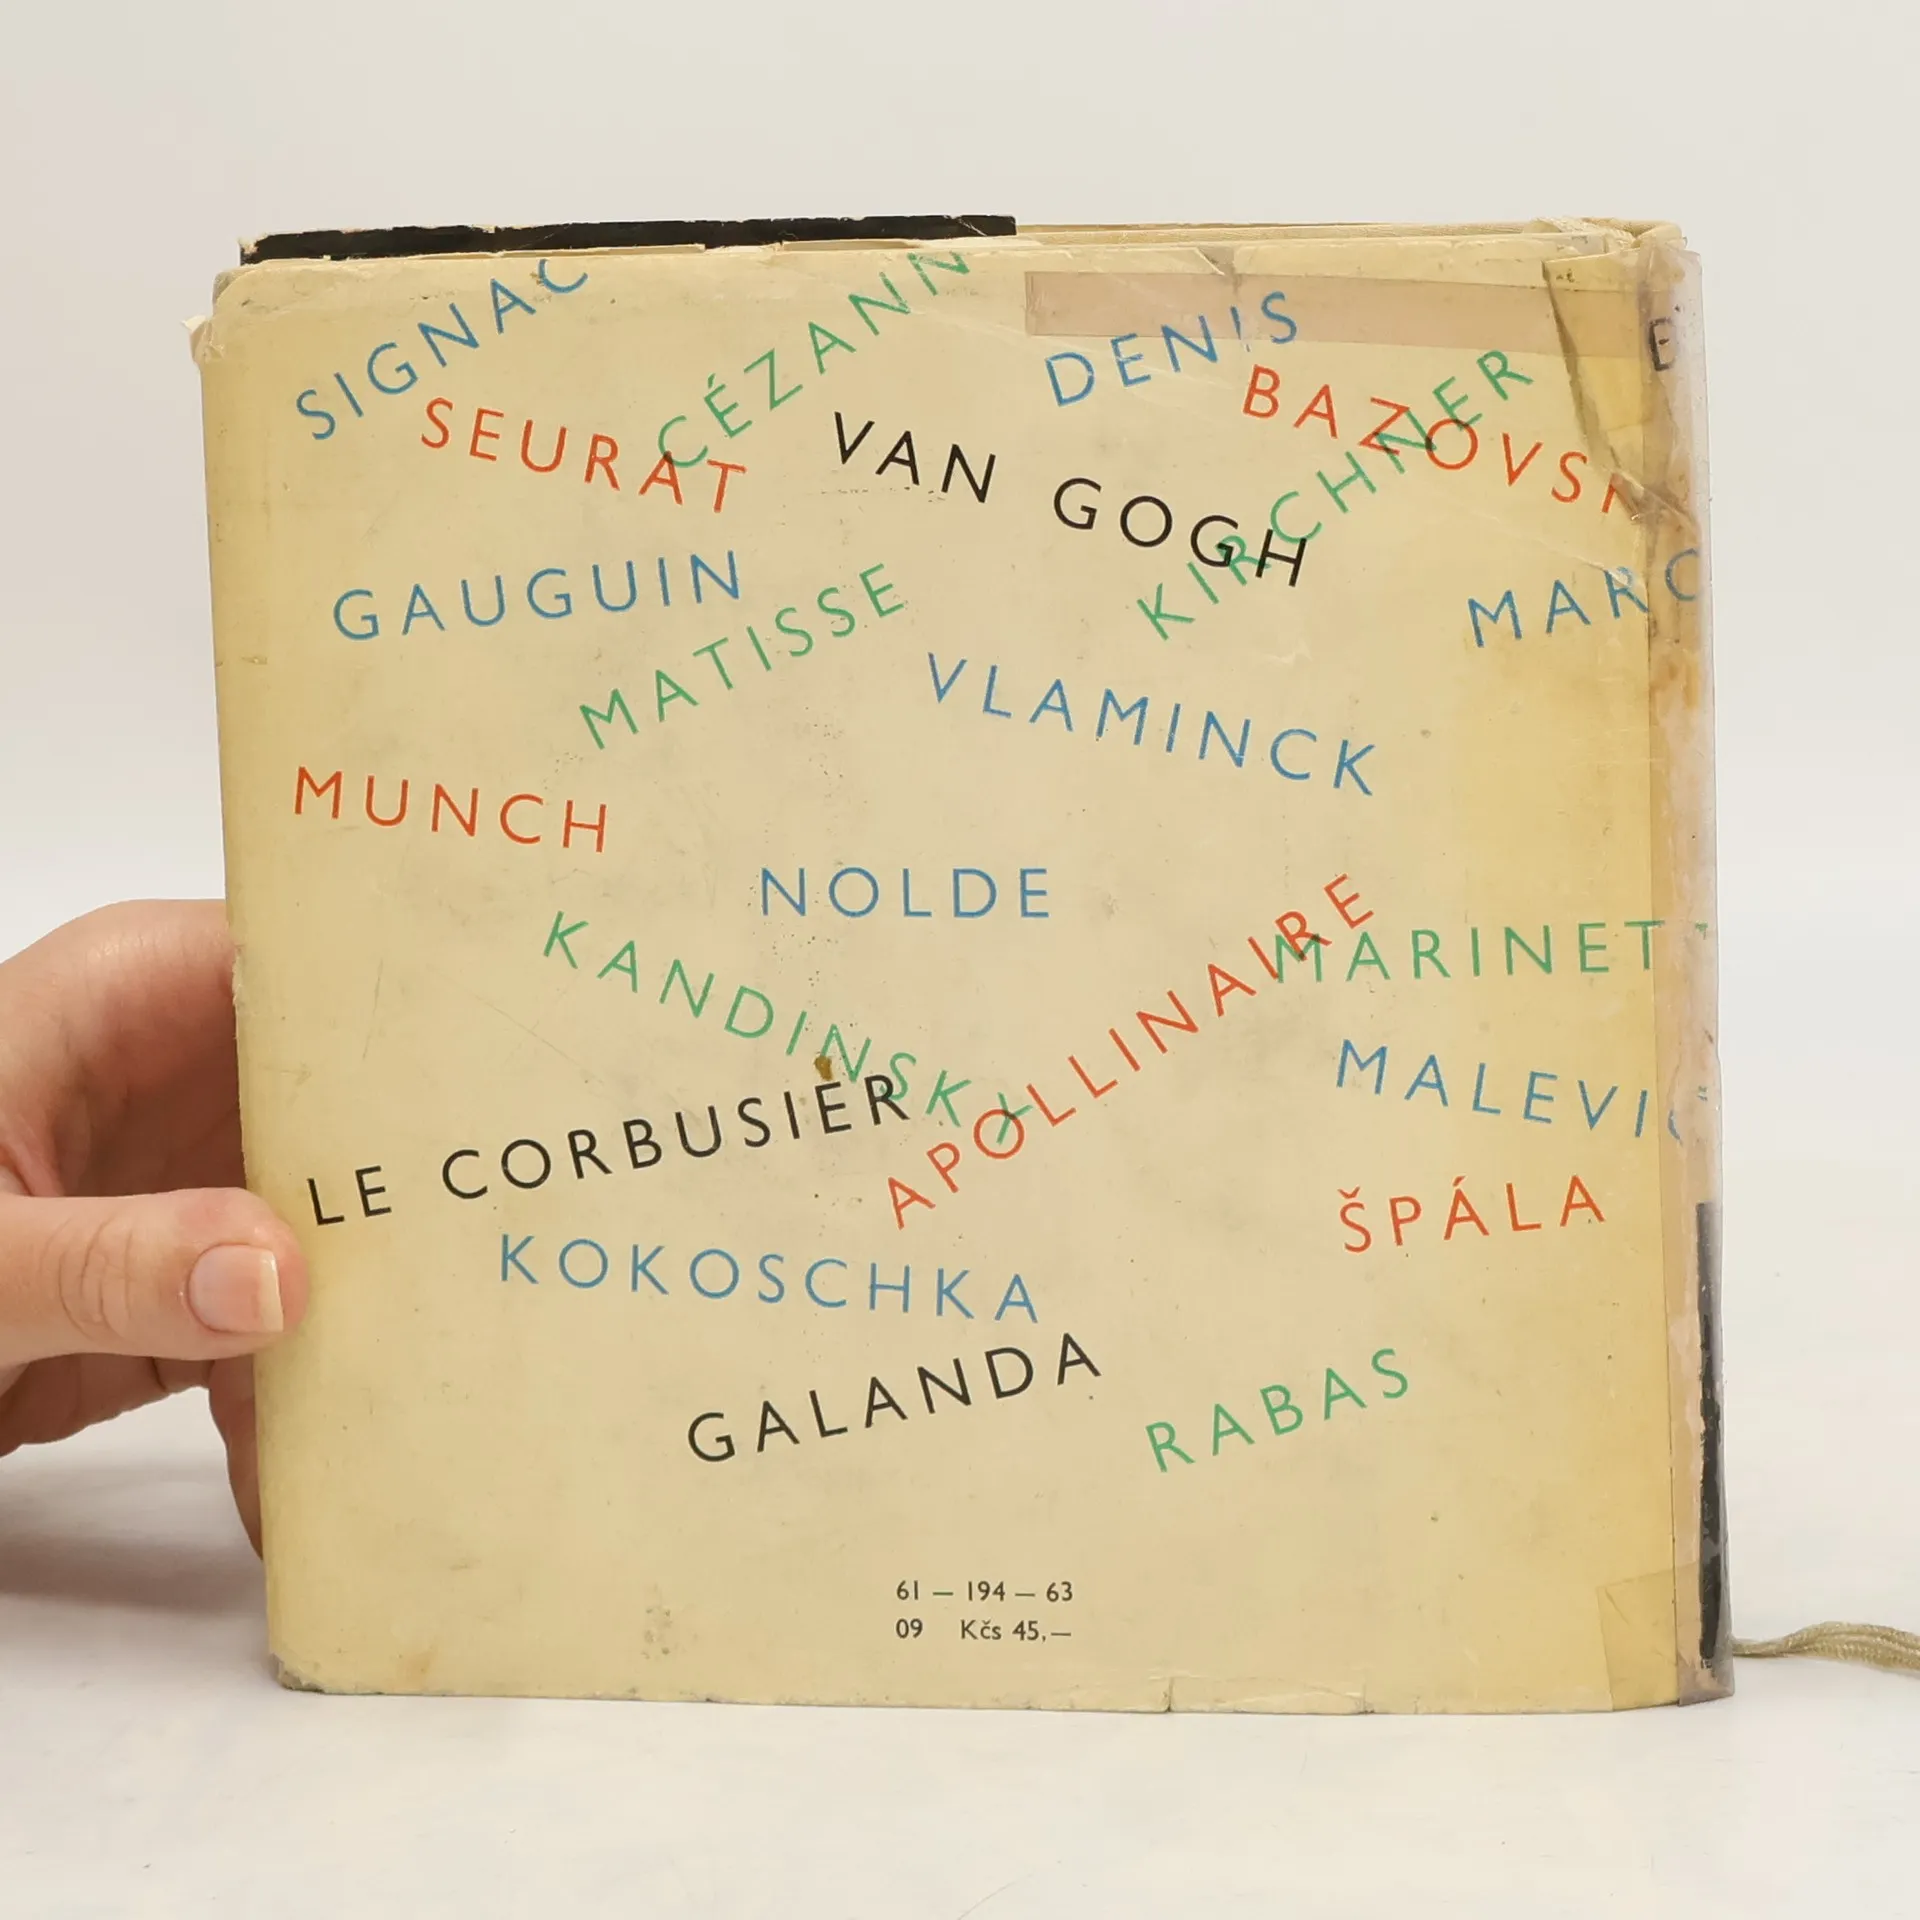 SIGNAC
CÉZANN
DENIS
SEURAT
BAZOVS
VAN GOGH
KIRCHNER
GAUGUIN
MARC
MATISSE
VLAMINCK
MUNCH
NOLDE
KANDINSKY
APOLLINAIRE
MARINET
MALEVI
LE CORBUSIER
ŠPÁLA
KOKOSCHKA
GALANDA
RABAS
61 — 194 — 63
09 Kčs 45,—